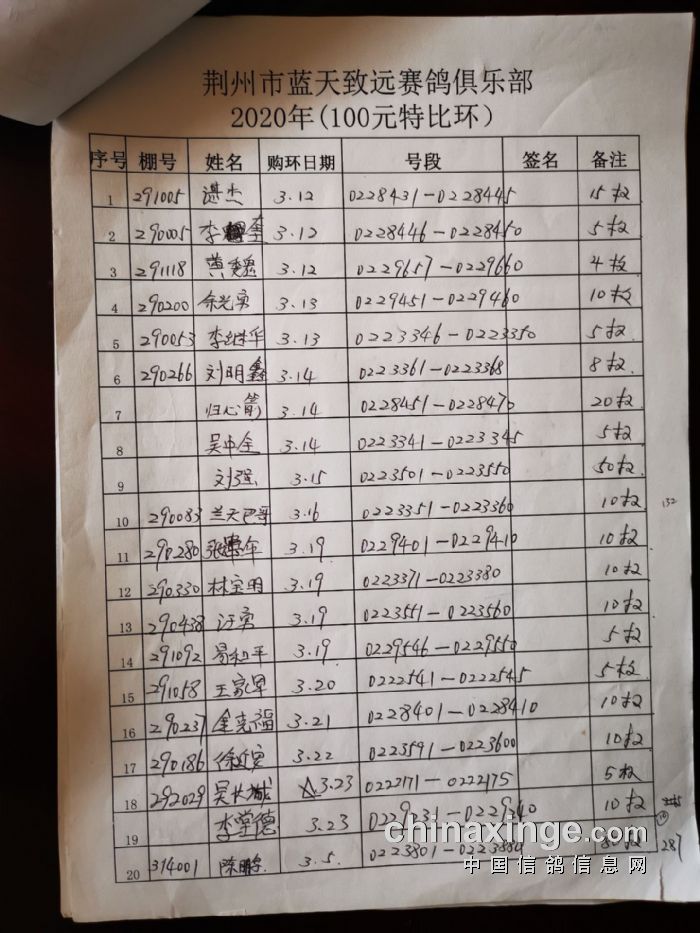 荆州市蓝天致远赛鸽俱乐部
2020年(100元特比环)
序号 棚号 姓名 购环日期 号段 签名 备注
1 291005 谌杰 3.12 0228431-0228445 15枚
2 290005 李 3.12 0228446-0228450 5枚
3 291118 黄魏 3.12 0229657-0229660 4枚
4 290200 余光勇 3.13 0229451-0229460 10枚
5 290053 李继华 3.13 0223346-0223350 5枚
6 290266 刘明鑫 3.14 0223361-0223368 8枚
7 归心箭 3.14 0228451-0228470 20枚
8 吴中全 3.14 0223341-0223345 5枚
9 刘强 3.15 0223501-0223550 50枚
10 290083 兰天巴哥 3.16 0223351-0223360 10枚 132
11 290280 3.19 0229401-0229410 10枚
12 290330 林宝明 3.19 0223371-0223380 10枚
13 290438 汪勇 3.19 0223551-0223560 10枚
14 291092 易和平 3.19 0229546-0229550 5枚
15 291058 王家军 3.20 0222541-0222545 5枚
16 290237 金克福 3.21 0228401-0228410 10枚
17 290186 3.22 0223591-0223600 10枚
18 292029 吴长城 3.23 0222171-0222175 5枚
19 李堂德 3.23 0229231-0229240 10枚
20 314001 陈鹏 3.5. 0223801- 80枚 287
chinaxinge.com
中国信鸽信息网